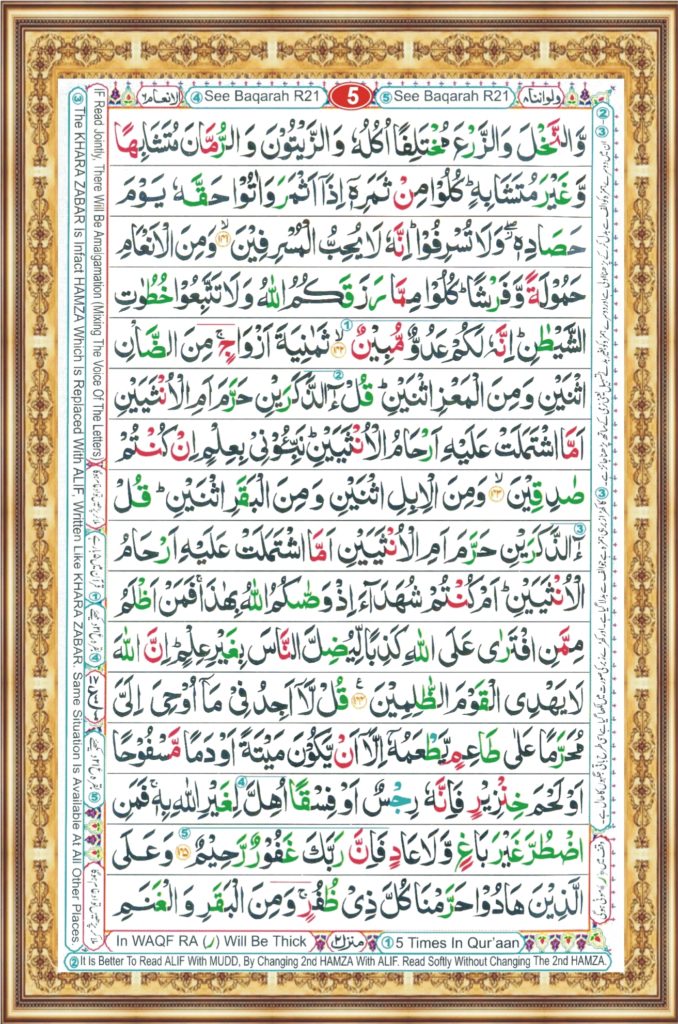 ولواننا ۸
⑤ See Baqarah R21
5
④ See Baqarah R21
الانعام ۶
وَّالنَّخْلَ وَالزَّرْعَ مُخْتَلِفًا اُكُلُهٗ وَالزَّيْتُوْنَ وَالرُّمَّانَ مُتَشَابِهًا
وَّغَيْرَ مُتَشَابِهٍ ؕ كُلُوْا مِنْ ثَمَرِهٖۤ اِذَاۤ اَثْمَرَ وَاٰتُوْا حَقَّهٗ يَوْمَ
حَصَادِهٖ ۖ وَلَا تُسْرِفُوْا ؕ اِنَّهٗ لَا يُحِبُّ الْمُسْرِفِيْنَ ۙ﴿۱۴۱﴾ وَمِنَ الْاَنْعَامِ
حَمُوْلَةً وَّفَرْشًا ؕ كُلُوْا مِمَّا رَزَقَكُمُ اللّٰهُ وَلَا تَتَّبِعُوْا خُطُوٰتِ
الشَّيْطٰنِ ؕ اِنَّهٗ لَكُمْ عَدُوٌّ مُّبِيْنٌ ① ۙ﴿۱۴۲﴾ ثَمٰنِيَةَ اَزْوَاجٍ ۚ مِنَ الضَّاْنِ
اثْنَيْنِ وَمِنَ الْمَعْزِ اثْنَيْنِ ؕ قُلْ ② ءٰٓالذَّكَرَيْنِ حَرَّمَ اَمِ الْاُنْثَيَيْنِ
اَمَّا اشْتَمَلَتْ عَلَيْهِ اَرْحَامُ الْاُنْثَيَيْنِ ؕ نَبِّـُٔوْنِيْ بِعِلْمٍ اِنْ كُنْتُمْ
صٰدِقِيْنَ ۙ﴿۱۴۳﴾ وَمِنَ الْاِبِلِ اثْنَيْنِ وَمِنَ الْبَقَرِ اثْنَيْنِ ؕ قُلْ
③ ءٰٓالذَّكَرَيْنِ حَرَّمَ اَمِ الْاُنْثَيَيْنِ اَمَّا اشْتَمَلَتْ عَلَيْهِ اَرْحَامُ
الْاُنْثَيَيْنِ ؕ اَمْ كُنْتُمْ شُهَدَآءَ اِذْ وَصّٰىكُمُ اللّٰهُ بِهٰذَا ۚ فَمَنْ اَظْلَمُ
مِمَّنِ افْتَرٰى عَلَى اللّٰهِ كَذِبًا لِّيُضِلَّ النَّاسَ بِغَيْرِ عِلْمٍ ؕ اِنَّ اللّٰهَ
لَا يَهْدِى الْقَوْمَ الظّٰلِمِيْنَ ﴿۱۴۴﴾ ع قُلْ لَّاۤ اَجِدُ فِيْ مَاۤ اُوْحِيَ اِلَيَّ
مُحَرَّمًا عَلٰى طَاعِمٍ يَّطْعَمُهٗۤ اِلَّاۤ اَنْ يَّكُوْنَ مَيْتَةً اَوْ دَمًا مَّسْفُوْحًا
اَوْ لَحْمَ خِنْزِيْرٍ فَاِنَّهٗ رِجْسٌ اَوْ فِسْقًا ④ اُهِلَّ لِغَيْرِ اللّٰهِ بِهٖ ۚ فَمَنِ
اضْطُرَّ غَيْرَ بَاغٍ وَّلَا عَادٍ فَاِنَّ رَبَّكَ غَفُوْرٌ رَّحِيْمٌ ⑤ ﴿۱۴۵﴾ وَعَلَى
الَّذِيْنَ هَادُوْا حَرَّمْنَا كُلَّ ذِيْ ظُفُرٍ ۚ وَمِنَ الْبَقَرِ وَالْغَنَمِ
In WAQF RA (ر) Will Be Thick
منزل ۲
① 5 Times In Qur'aan
② It Is Better To Read ALIF With MUDD, By Changing 2nd HAMZA With ALIF. Read Softly Without Changing The 2nd HAMZA.
③ The KHARA ZABAR Is Infact HAMZA Which Is Replaced With ALIF, Written Like KHARA ZABAR. Same Situation Is Available At All Other Places.
(IF Read Jointly, There Will Be Amalgamation (Mixing The Voice Of The Letters)